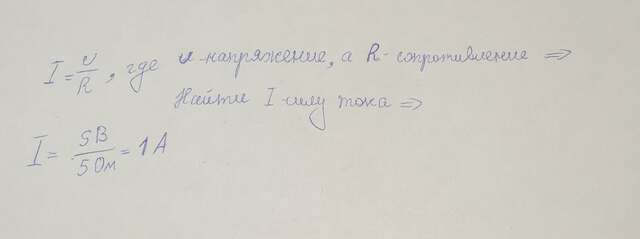 I = U/R, где U-напряжение, а R-сопротивление =>
Найти I-силу тока =>
I = 5В/5Ом = 1А